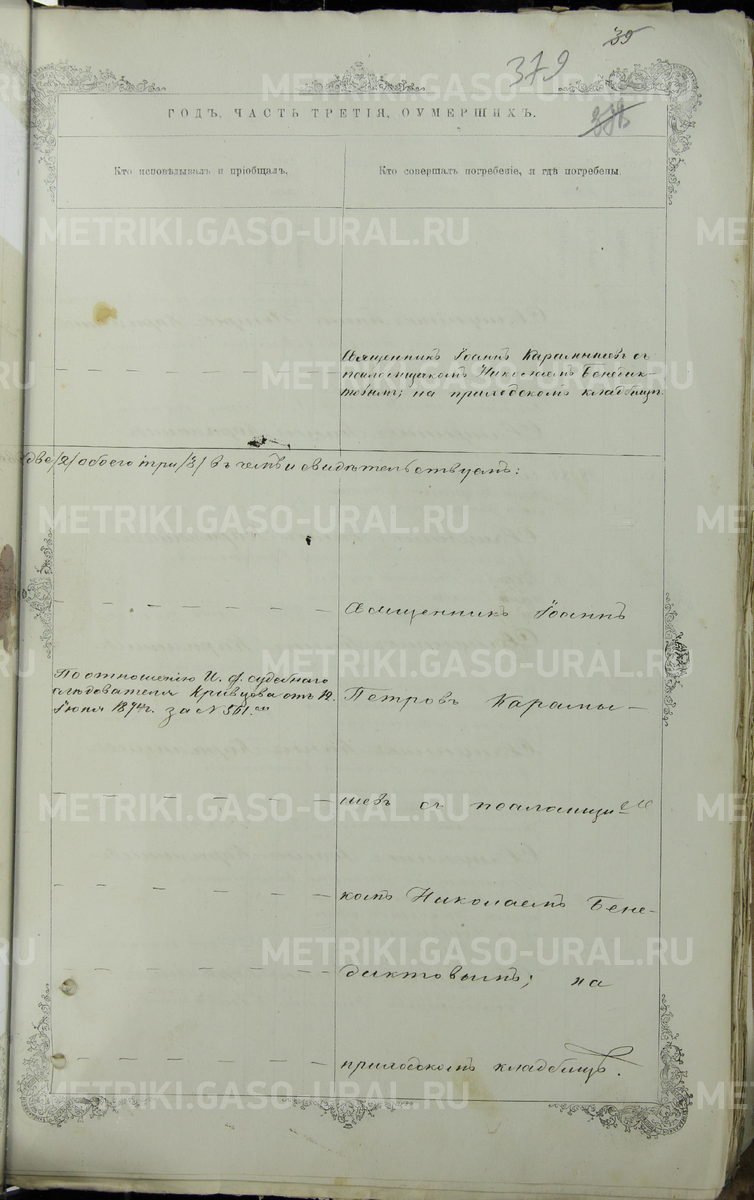 39
379
338
ГОДЪ, ЧАСТЬ ТРЕТІЯ, О УМЕРШИХЪ.
Кто исповѣдывалъ и пріобщалъ.
Кто совершалъ погребеніе, и гдѣ погребены.
Священникъ Іоаннъ Карамышевъ съ
псаломщикомъ Николаемъ Бенедик-
товымъ; на приходскомъ кладбищѣ.
двѣ /2/ обоего три /3/ въ чемъ и свидѣтельствуемъ:
Священникъ Іоаннъ
По отношенію И. ф. судебнаго
слѣдователя Кривцова отъ 12
Іюня 187 г. за № 561.
Петровъ Карамы-
шевъ съ псаломщи-
комъ Николаемъ Бене-
диктовымъ; на
приходскомъ кладбищѣ.
METRIKI.GASO-URAL.RU